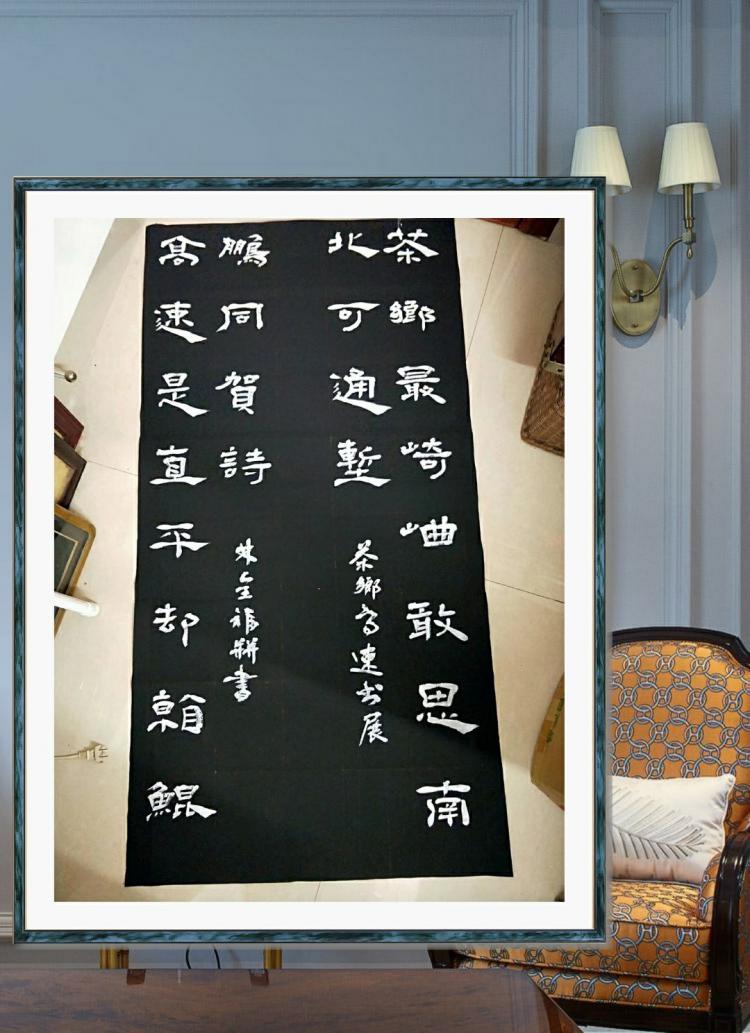 茶鄉最崎敢思南
北可通塹
茶鄉高速书展
高速是直平却賴鯤
鵬同賀詩
林金福書